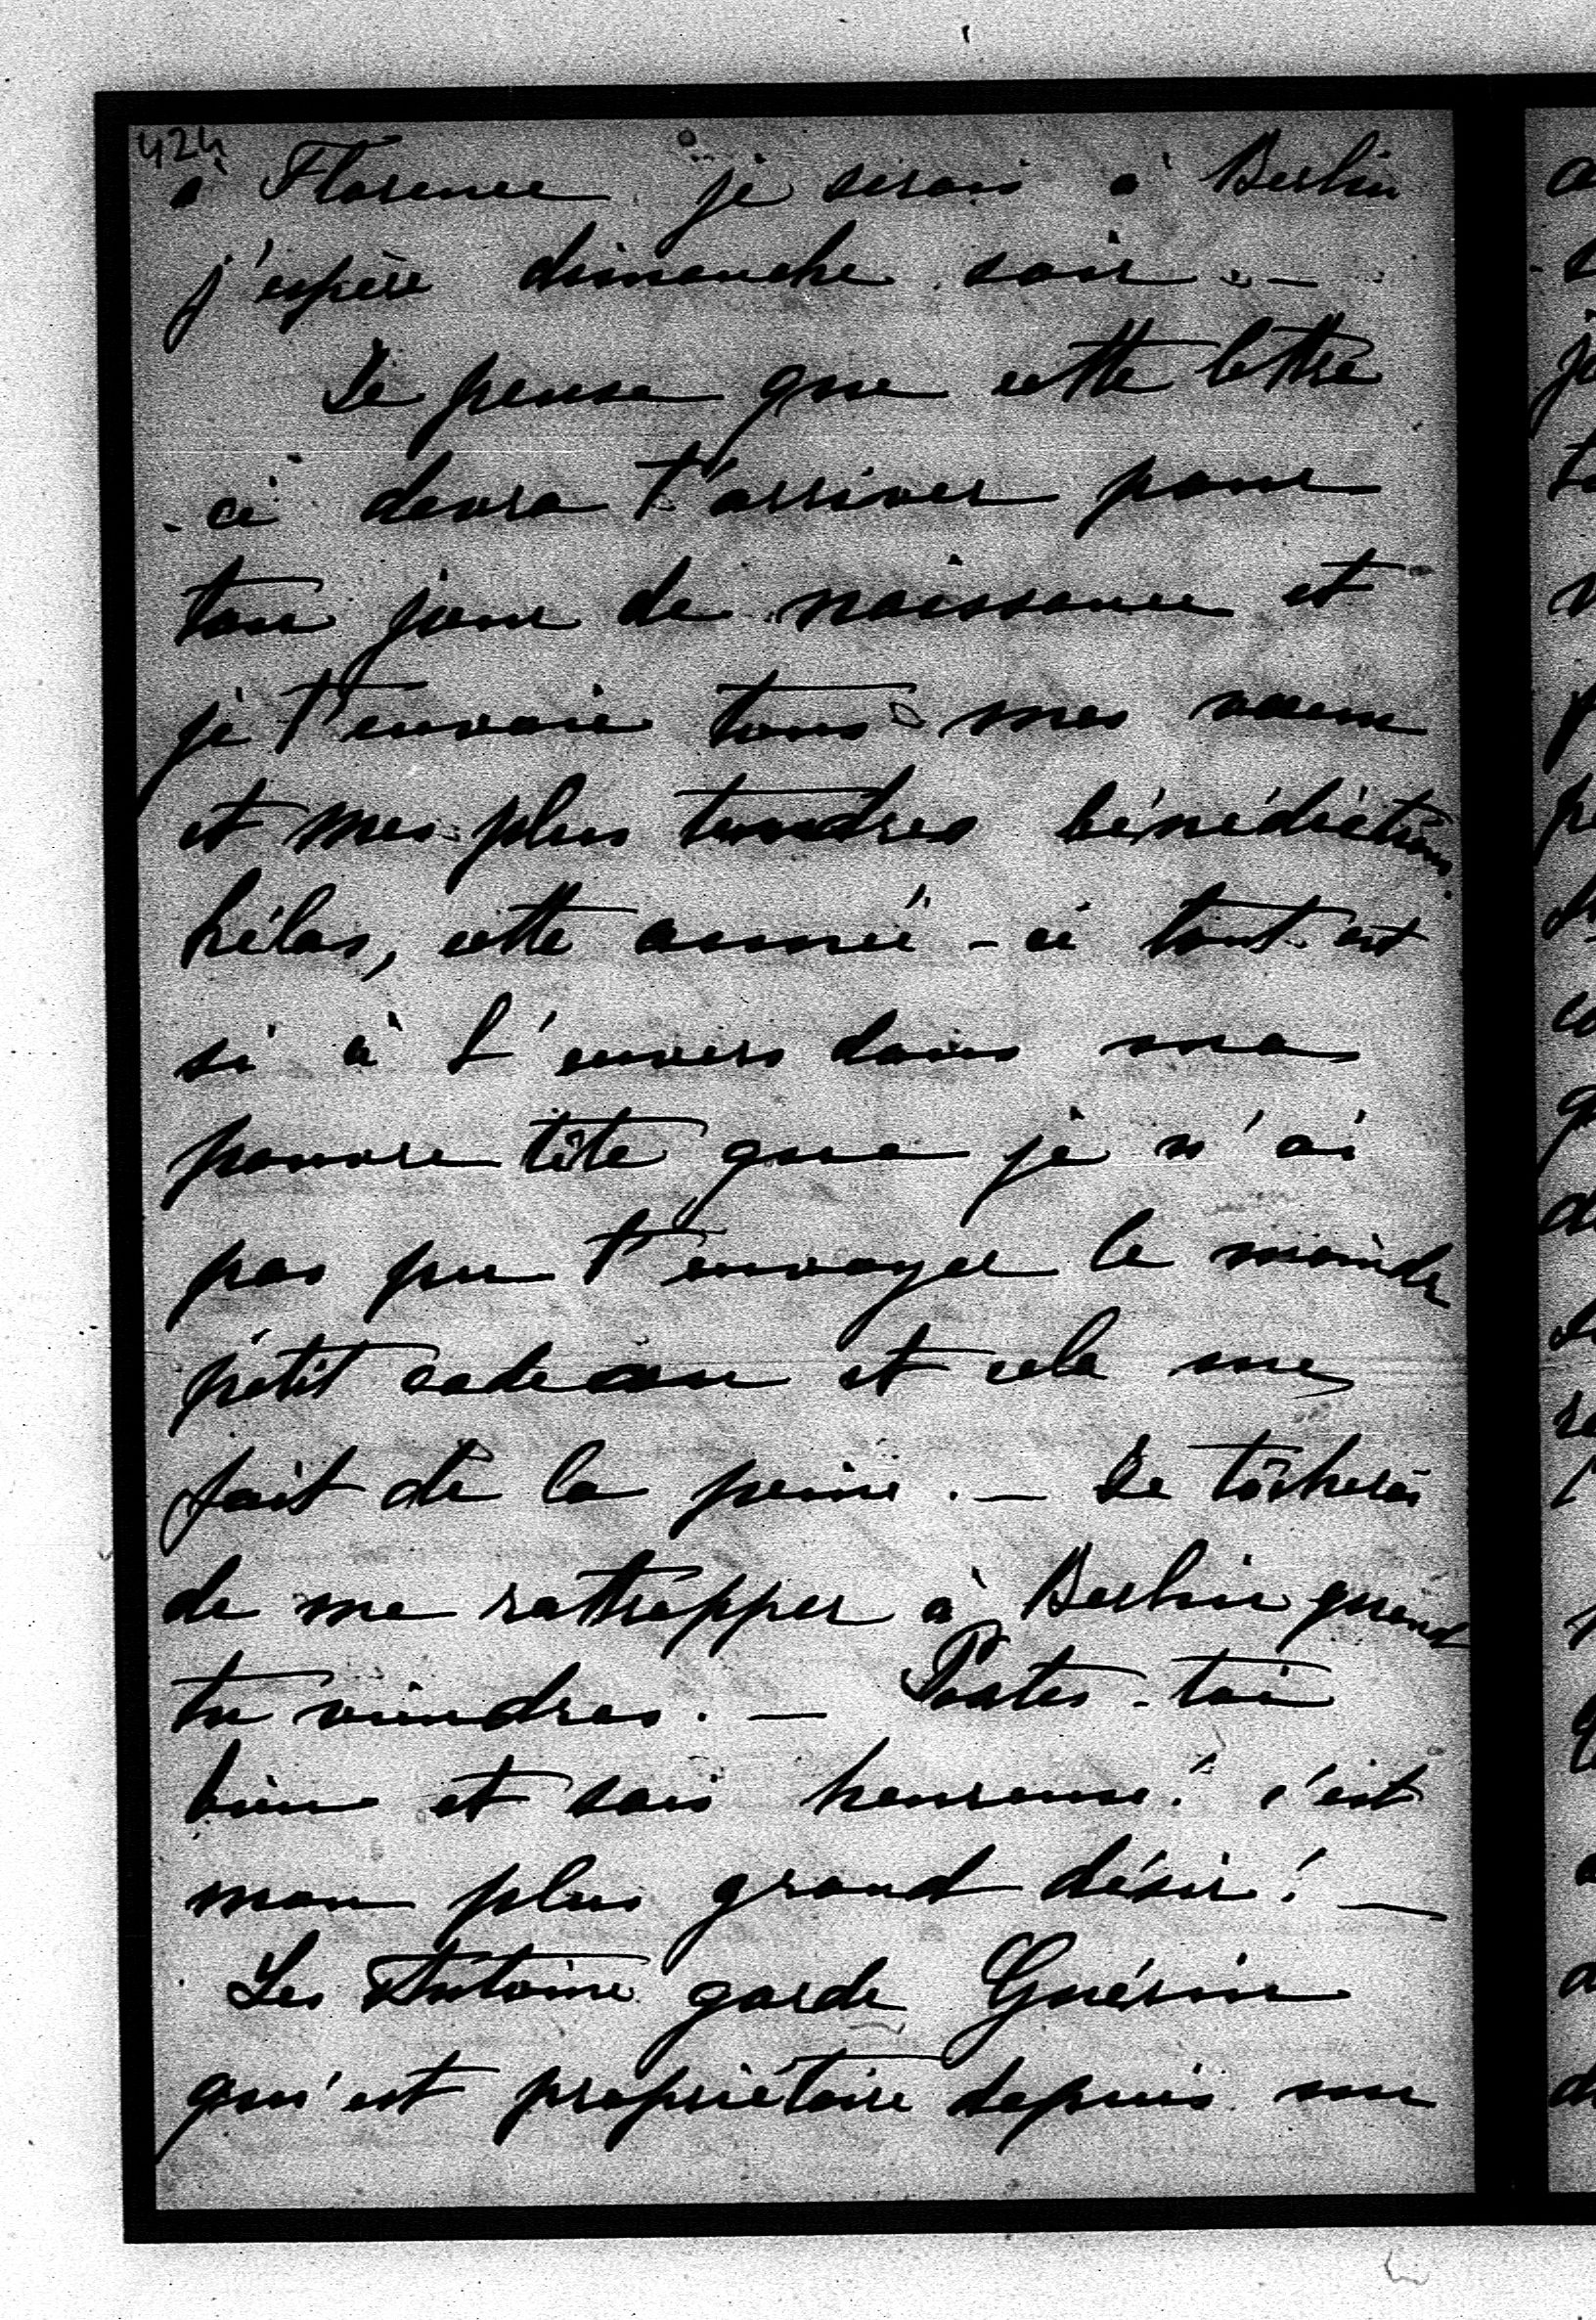 424
à Florence. je serais à Berlin
j'espère dimanche soir. –
Je pense que cette lettre
-ci devra t'arriver pour
ton jour de naissance et
je t'envoie tous mes vœux
et mes plus tendres bénédictions.
hélas, cette année-ci tout est
si à l'envers dans ma
pauvre tête que je n'ai
pas pu t'envoyer le moindre
petit cadeau et cela me
fait de la peine. – Je tâcherai
de me rattrapper à Berlin quand
tu viendras. – Portes-toi
bien et sois heureuse! c'est
mon plus grand désir! –
Les Antoine garde Guérin
qu'est propriétaire depuis un